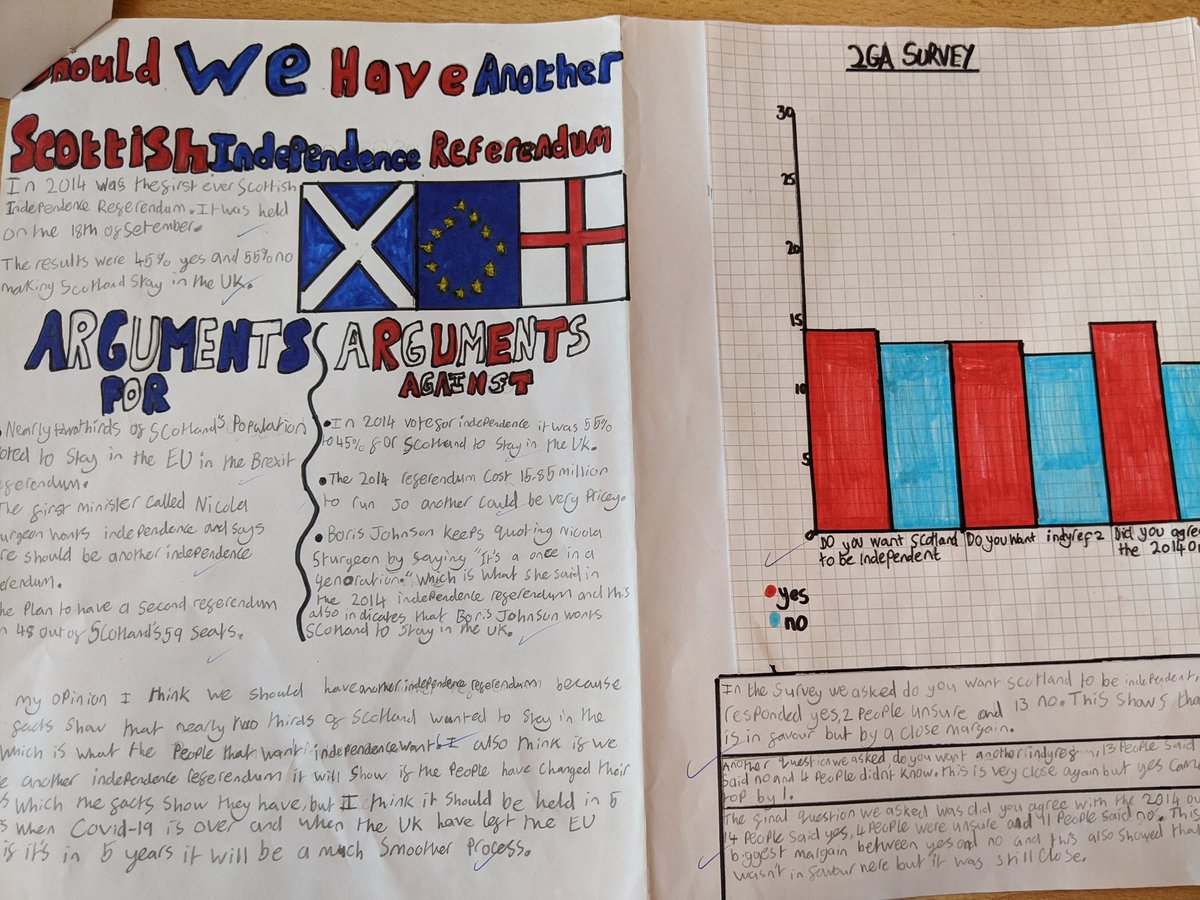 Should We Have Another
Scottish Independence Referendum
In 2014 was the first ever Scottish
Independence Referendum. It was held
on the 18th of Setember.
The results were 45% yes and 55% no
making Scotland Stay in the UK.
ARGUMENTS
FOR
Nearly two thirds of Scotland's Population
voted to Stay in the EU in the Brexit
referendum.
The first minister called Nicola
Sturgeon wants independence and says
there should be another independence
referendum.
The Plan to have a second referendum
48 out of Scotland's 59 Seats.
ARGUMENTS
AGAINST
•In 2014 vote for independence it was 55%
to 45% for Scotland to Stay in the UK.
•The 2014 referendum Cost 15.85 million
to run so another could be very Pricey.
•Boris Johnson keeps quoting Nicola
Sturgeon by saying "It's a once in a
generation." which is what She said in
the 2014 independence referendum and this
also indicates that Boris Johnson wants
Scotland to Stay in the UK.
my opinion I think we should have another independence referendum because
facts Show that nearly two thirds of Scotland wanted to Stay in the
which is what the People that want independence want. I also think if we
another independence referendum it will show if the People have changed their
which the facts Show they have, but I think it Should be held in 5
when Covid-19 is over and when the UK have left the EU
if it's in 5 years it will be a much Smoother Process.
2GA SURVEY
30
25
20
15
10
5
0
Do you want Scotland to be independent
Do you want indyref2
Did you agree the 2014
yes
no
In the Survey we asked do you want Scotland to be independent,
responded yes, 2 People unsure and 13 no. This Shows that
is in favour but by a close margain.
Another question we asked do you want another indyref, 13 People Said
Said no and 4 People didn't know. This is very close again but yes came
top by 1.
The final question we asked was did you agree with the 2014
14 People said yes, 4 People were unsure and 11 People Said no. This
biggest margain between yes and no and this also Showed that
wasn't in favour here but it was still close.